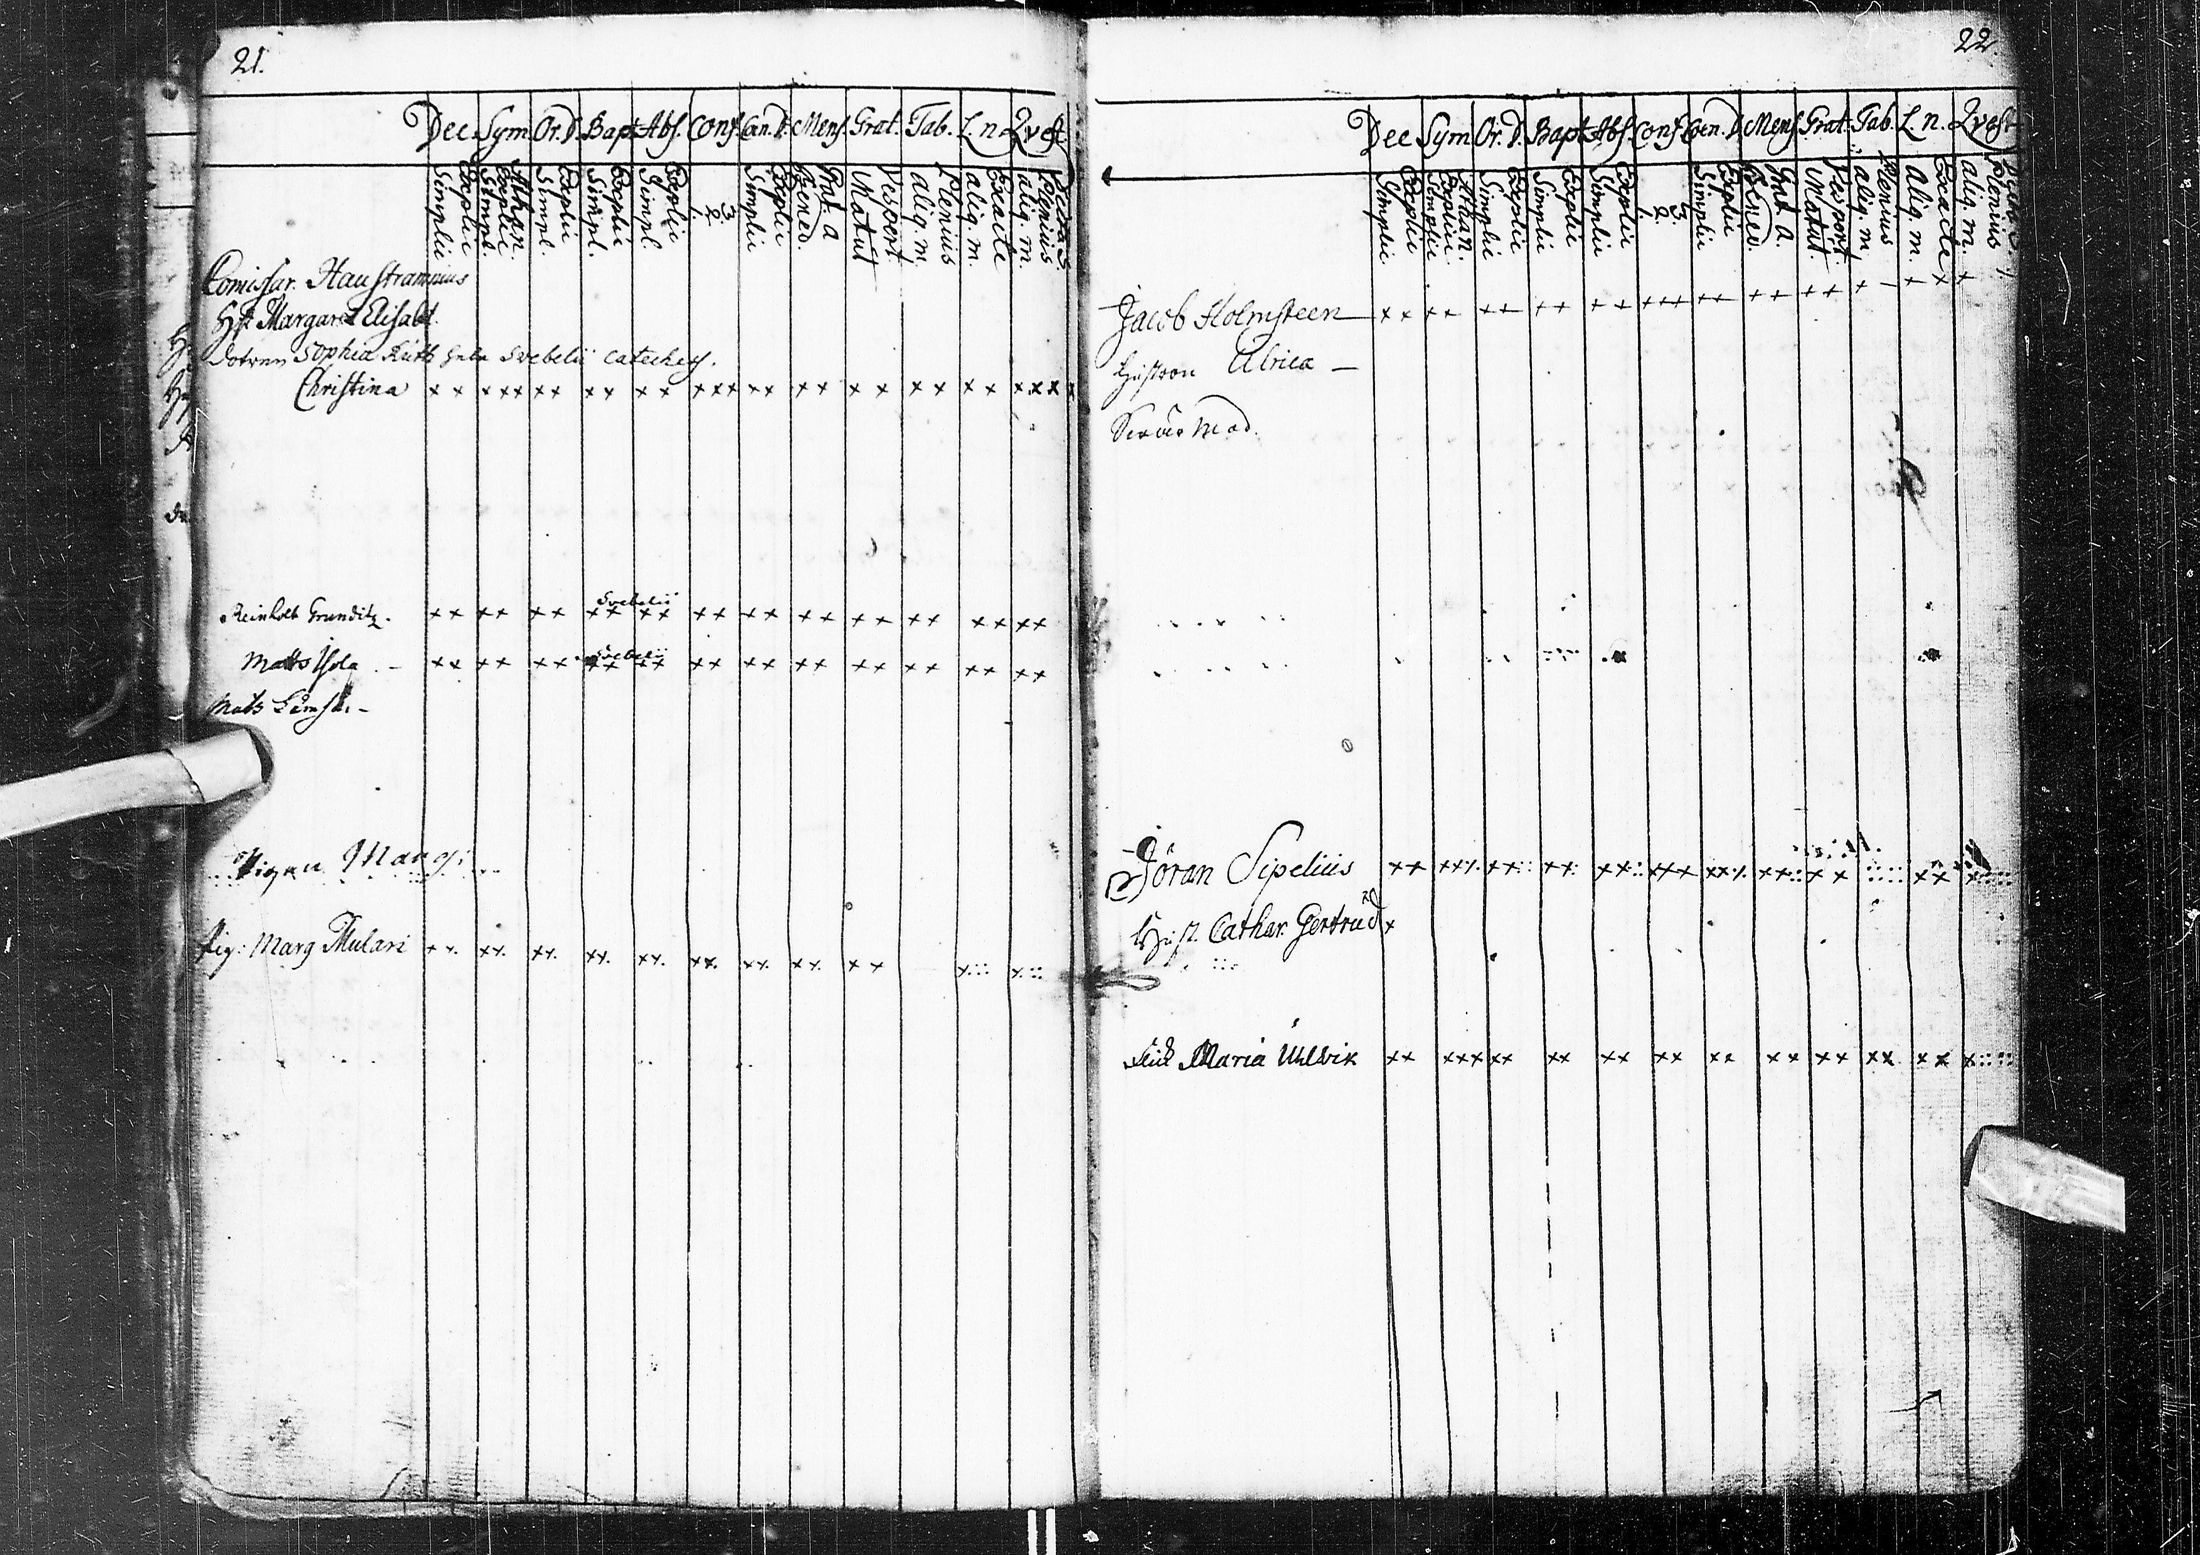 21.
Dec. Sym. Or. D. Bapt. Abs. Conf. Cœn. D. Mens. Grat. Tab. L. n. Qvest.
Simplic Explic Simpl. Explic Athan. Simpl. Explic Simpl. Explic Simpl. Explic 1. 2. 3. Simplic Explic Bened. Grat. a Matut Vespert. aliq. m. Plenius aliq. m. Exacte aliq. m. Plenius
Comissar. Haustramnius
Hst. Margaret Elisabt.
Dotren Sophia Ruth hela Svebelii Cateches.
Christina ×× ××× ×× ×× ×× ××× ×× ×× ×× ×× ×× ××××
Svebelii
Reinholt Grunditz. ×× ×× ×× ×× ×× ×× ×× ×× ×× ×× ×× ××
Svebelii
Matts ×× ×× ×× ×× ×× ×× ×× ×× ×× ×× ×× ××
Mats
Pigan
Pig: Marg Mulari
22.
Dec Sym. Or. D. Bapt. Abs. Conf. Cœn. D. Mens. Grat. Tab. L. n. Qvest
Simplic. Explic Simplic Explic. Athan. Simplic Explic Simplic Explic Simplic Explic 1. 2. 3. Simplic Explic Bened. Grat. a. Matut. Vespert. aliq. m. Plenius Aliq. m. Exacte aliq. m. Plenius
Jacob Holmsteen ×× ×× ×× ×× ×× ××× ×× ×× ××
Hustron Ulrica —
Mad.
Jöran Sipelius
Hust. Cathar. Gertrud ×
Maria Uhlwik ×× ××× ×× ×× ×× ×× ×× ×× ×× ×× ×× ×